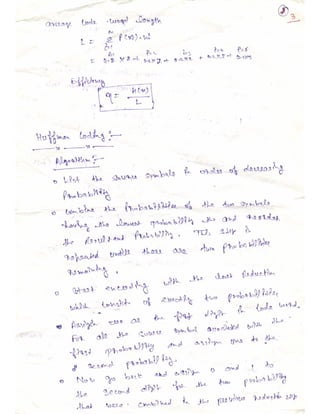 3
average Code-word Length
L = Σ P(xi).ni
Efficiency
η = H(x) / L
Huffman Coding :-
Algorithm :-
o List the source symbols in order of decreasing
Probability
o Combine the Probabilities of the two symbols
having the lowest probability and reorder
the Resultant Probability. This step is
repeated until there are two Probabilities
remaining.
o Start encoding with the last Reduction
which consist of exactly two probabilities.
Assign zero as the first digit in code word.
For all the source symbol associated with the
first probability and assign one to the
second probability.
o Now go back and assign 0 and 1 to
the second digit for the two probability
that were combined in the previous reduction step